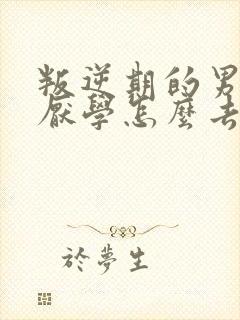 叛逆期的男
厭學怎麼去
於夢生